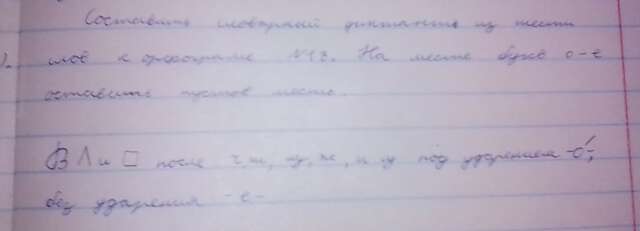 Составить словарный диктант из шести
слов к орфограмме №13. На месте букв о-е
оставить пустое место.
В ∧ и □ после ч, ш, щ, ж, и ц под ударением -о́-,
без ударения -е-